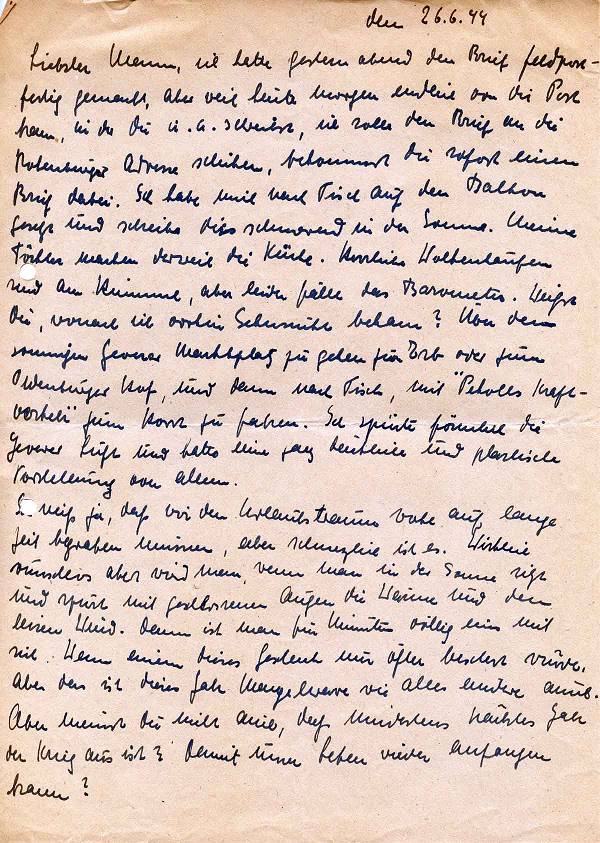 den 26.6.44
Liebster Mann, ich hatte gestern abend den Brief feldpost-
fertig gemacht, aber weil heute morgen endlich von Dir Post
kam, in der Du u.a. schreibst, ich solle den Brief an die
Rotenburger Adresse schicken, bekommst Du sofort einen
Brief dabei. Ich habe mich nach Tisch auf den Balkon
gesetzt und schreibe dies schmorend in der Sonne. Meine
Töchter machen derweil die Küche. Herrliche Wolkenhaufen
sind am Himmel, aber leider fällt das Barometer. Weißt
Du, wonach ich vorhin Sehnsucht bekam? Von dem
sonnigen Jeverer Marktplatz zu gehen zum Erb oder zum
Oldenburger Hof, und dann nach Tisch, mit "
" zum Horst zu fahren. Ich spürte förmlich die
Jeverer Luft und hatte eine ganz deutliche und plastische
Vorstellung von allem.
Ich weiß ja, daß wir den Urlaubstraum wohl auf lange
Zeit begraben müssen, aber schmerzlich ist es. Wirklich
wunschlos aber wird man, wenn man in der Sonne sitzt
und spürt mit geschlossenen Augen die Wärme und den
leisen Wind. Dann ist man für Minuten völlig eins mit
sich. Wenn einem dieses Geschenk nur öfter beschert würde.
Aber das ist dieses Jahr Mangelware wie alles andere auch.
Aber meinst Du nicht auch, daß mindestens nächstes Jahr
der Krieg aus ist? Damit unser Leben wieder anfangen
kann?